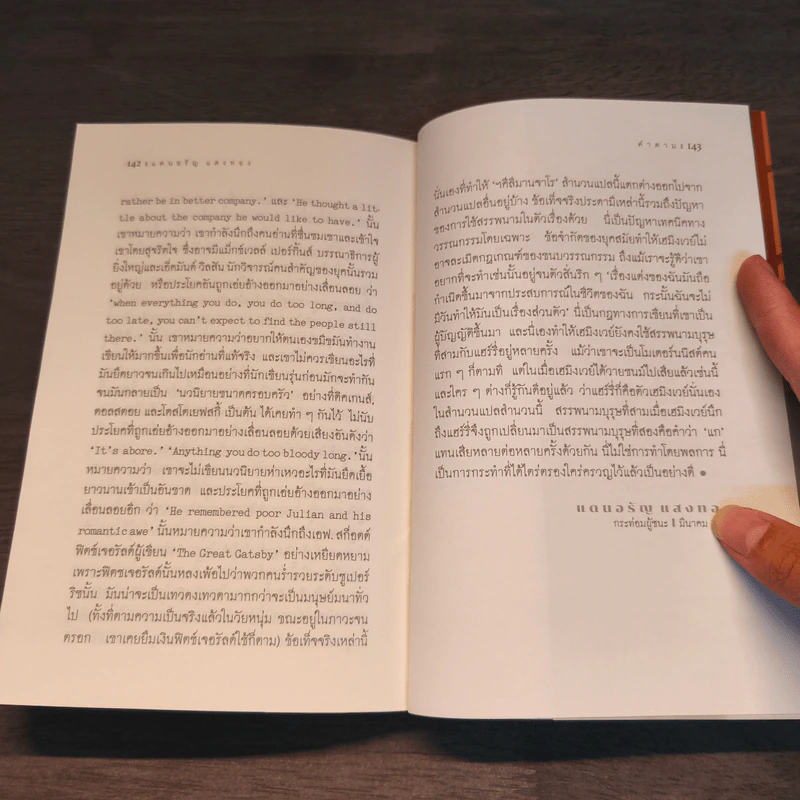 142 : แดนอรัญ แสงทอง
rather be in better company.' และ 'He thought a lit-
tle about the company he would like to have.' นั้น
เขาหมายความว่า เขากำลังนึกถึงคนอ่านที่ชื่นชมเขาและเข้าใจ
เขาโดยสุจริตใจ ซึ่งอาจมีแม็กซ์เวลล์ เปอร์กิ้นส์ บรรณาธิการผู้
ยิ่งใหญ่และเอ็ดมันด์ วิลสัน นักวิจารณ์คนสำคัญของยุคนั้นรวม
อยู่ด้วย หรือประโยคอันถูกเอ่ยอ้างออกมาอย่างเลื่อนลอย ว่า
'when everything you do, you do too long, and do
too late, you can't expect to find the people still
there.' นั้น เขาหมายความว่าอยากให้ตนเองขมีขมันทำงาน
เขียนให้มากขึ้นเพื่อนักอ่านที่แท้จริง และเขาไม่ควรเขียนอะไรที่
มันยืดยาวจนเกินไปเหมือนอย่างที่นักเขียนรุ่นก่อนมักจะทำกัน
จนมันกลายเป็น 'นวนิยายขนาดครอบครัว' อย่างที่ดิคเกนส์,
ตอลสตอย และโดสโตเยฟสกี้ เป็นต้น ได้เคยทำ ๆ กันไว้ ไม่นับ
ประโยคที่ถูกเอ่ยอ้างออกมาอย่างเลื่อนลอยด้วยเสียงอันดังว่า
'It's abore.' 'Anything you do too bloody long.' นั้น
หมายความว่า เขาจะไม่เขียนนวนิยายห่าเหวอะไรที่มันยืดเยื้อ
ยาวนานเข้าเป็นอันขาด และประโยคที่ถูกเอ่ยอ้างออกมาอย่าง
เลื่อนลอยอีก ว่า 'He remembered poor Julian and his
romantic awe' นั้นหมายความว่าเขากำลังนึกถึงเอฟ. สก็อตต์
ฟิตซ์เจอรัลด์ผู้เขียน 'The Great Gatsby' อย่างเหยียดหยาม
เพราะฟิตซเจอรัลด์นั้นหลงเพ้อไปว่าพวกคนร่ำรวยระดับซูเปอร์
ริชนั้น มันน่าจะเป็นเทวดงเทวดามากกว่าจะเป็นมนุษย์มนาทั่ว
ไป (ทั้งที่ตามความเป็นจริงแล้วในวัยหนุ่ม ขณะอยู่ในภาวะจน
ตรอก เขาเคยยืมเงินฟิตซ์เจอรัลด์ใช้ก็ตาม) ข้อเท็จจริงเหล่านี้
คำตาม : 143
นั่นเองที่ทำให้ 'ฯคิลิมานจาโร' สำนวนแปลนี้แตกต่างออกไปจาก
สำนวนแปลอื่นอยู่บ้าง ข้อเท็จจริงประดามีเหล่านี้รวมถึงปัญหา
ของการใช้สรรพนามในตัวเรื่องด้วย นี่เป็นปัญหาเทคนิคทาง
วรรณกรรมโดยเฉพาะ ข้อจำกัดของยุคสมัยทำให้เฮมิงเวย์ไม่
อาจละเมิดกฎเกณฑ์ของขนบวรรณกรรม ถึงแม้เราจะรู้ดีว่าเขา
อยากที่จะทำเช่นนั้นอยู่จนตัวสั่นริก ๆ 'เรื่องแต่งของฉันมันถือ
กำเนิดขึ้นมาจากประสบการณ์ในชีวิตของฉัน กระนั้นฉันจะไม่
มีวันทำให้มันเป็นเรื่องส่วนตัว' นี่เป็นกฎทางการเขียนที่เขาเป็น
ผู้บัญญัติขึ้นมา และนี่เองทำให้เฮมิงเวย์ยังคงใช้สรรพนามบุรุษ
ที่สามกับแฮร์รี่อยู่หลายครั้ง แม้ว่าเขาจะเป็นโมเดอร์นนิสต์คน
แรก ๆ ก็ตามที แต่ในเมื่อเฮมิงเวย์ได้วายชนม์ไปเสียแล้วเช่นนี้
และใคร ๆ ต่างก็รู้กันดีอยู่แล้ว ว่าแฮร์รี่ก็คือตัวเฮมิงเวย์นั่นเอง
ในสำนวนแปลสำนวนนี้ สรรพนามบุรุษที่สามเมื่อเฮมิงเวย์นึก
ถึงแฮร์รี่จึงถูกเปลี่ยนมาเป็นสรรพนามบุรุษที่สองคือคำว่า 'แก'
แทนเสียหลายต่อหลายครั้งด้วยกัน นี่ไม่ใช่การทำโดยพลการ นี่
เป็นการกระทำที่ได้ไตร่ตรองใคร่ครวญไว้แล้วเป็นอย่างดี ●
แดนอรัญ แสงทอ
กระท่อมผู้ชนะ | มีนาคม